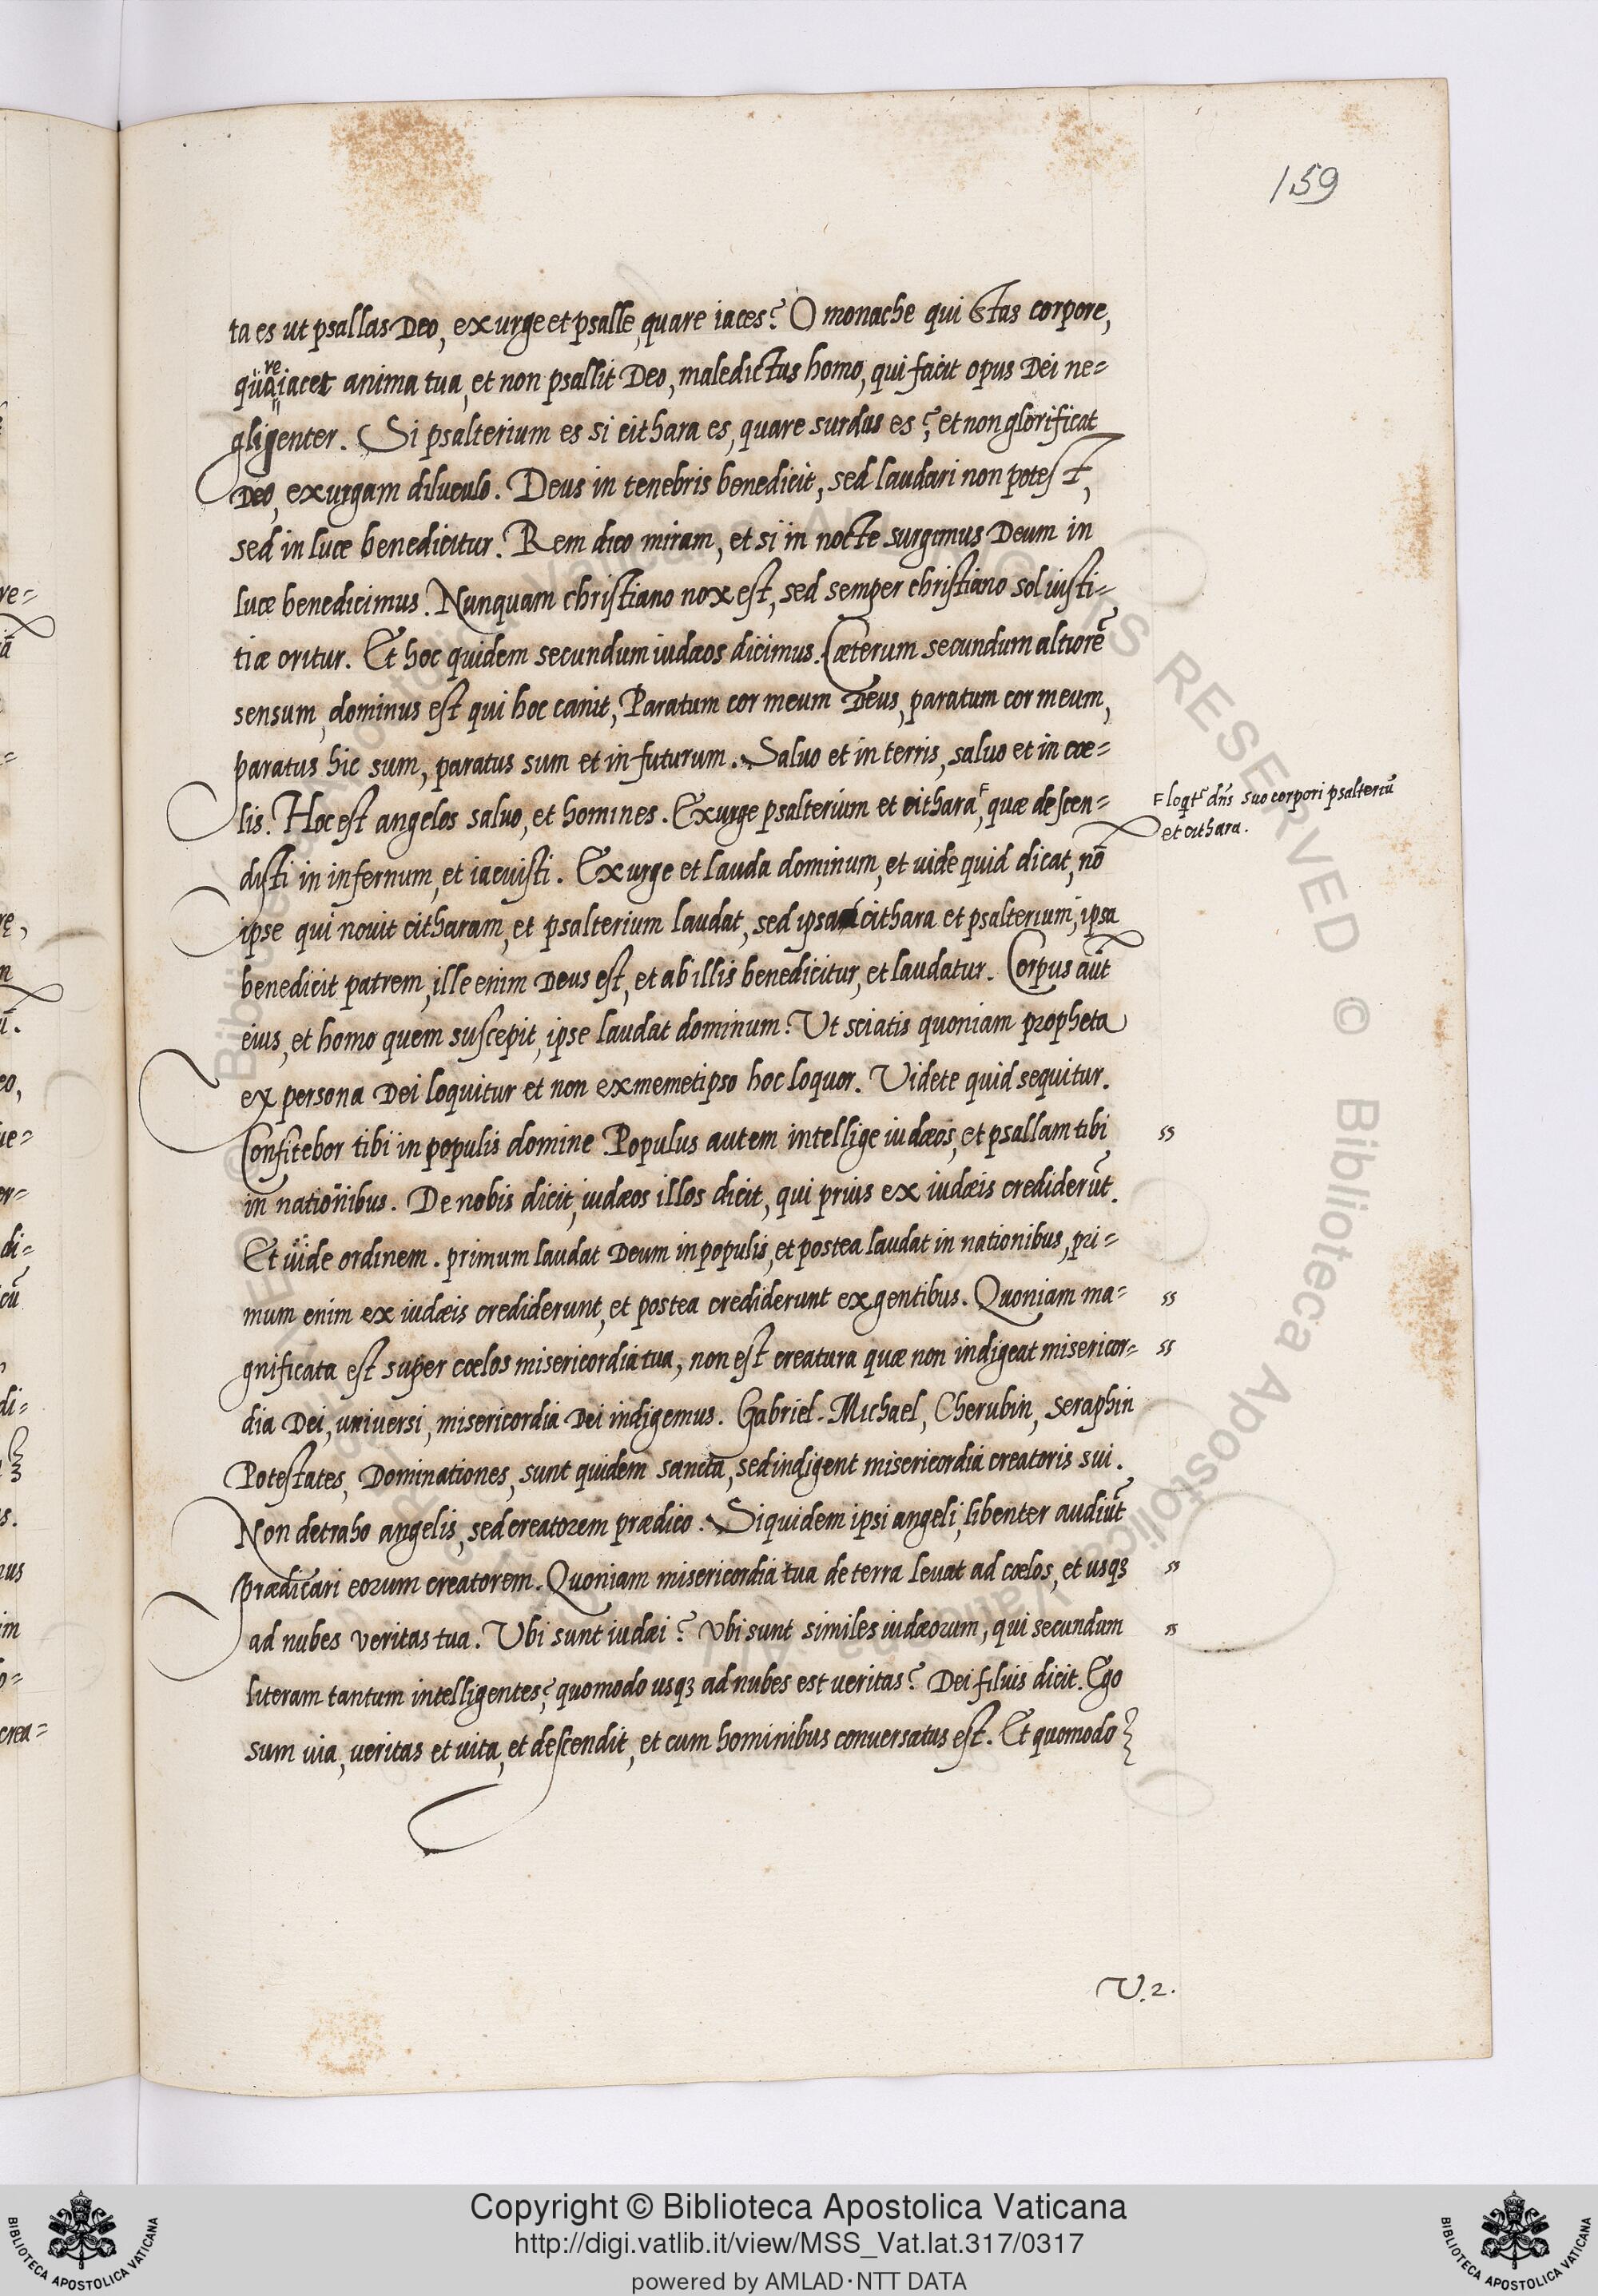 159
ta es ut psallas Deo, exurge et psalle, quare iaces? O monache qui stas corpore,
qua iacet anima tua, et non psallit Deo, maledictus homo, qui facit opus Dei ne=
re
gligenter. Si psalterium es si cithara es, quare surdus es? et non glorificat
Deo, exurgam diluculo. Deus in tenebris benedicit, sed laudari non potest,
sed in luce benedicitur. Rem dico miram, et si in nocte surgimus Deum in
luce benedicimus. Nunquam christiano nox est, sed semper christiano sol iusti=
tiæ oritur. Et hoc quidem secundum iudæos dicimus. Cæterum secundum altiorē
sensum, dominus est qui hoc canit, Paratum cor meum Deus, paratum cor meum,
paratus hic sum, paratus sum et in futurum. Saluo et in terris, saluo et in cœ=
lis. Hoc est angelos saluo, et homines. Exurge psalterium et cithara, quæ descen=
F loqtr dns suo corpori psalteriū
et cithara.
disti in infernum, et iacuisti. Exurge et lauda dominum, et uide quid dicat, nō
ipse qui nouit citharam, et psalterium laudat, sed ipsa cithara et psalterium, ipsa
benedicit patrem, ille enim Deus est, et ab illis benedicitur, et laudatur. Corpus aūt
eius, et homo quem suscepit, ipse laudat dominum. Ut sciatis quoniam propheta
ex persona Dei loquitur et non ex memetipso hoc loquor. Videte quid sequitur.
Confitebor tibi in populis domine. Populus autem intellige iudæos, et psallam tibi ss
in nationibus. De nobis dicit, iudæos illos dicit, qui prius ex iudæis crediderūt.
Et uide ordinem. primum laudat Deum in populis, et postea laudat in nationibus, pri=
mum enim ex iudæis crediderunt, et postea crediderunt ex gentibus. Quoniam ma= ss
gnificata est super cœlos misericordia tua, non est creatura quæ non indigeat misericor= ss
dia Dei, universi, misericordia Dei indigemus. Gabriel. Michael, Cherubin, Seraphin
Potestates, Dominationes, sunt quidem sancta, sed indigent misericordia creatoris sui.
Non detraho angelis, sed creatorem prædico. Siquidem ipsi angeli, libenter audiūt
prædicari eorum creatorem. Quoniam misericordia tua de terra leuat ad cœlos, et usqꝫ ss
ad nubes veritas tua. Ubi sunt iudæi? vbi sunt similes iudæorum, qui secundum ss
literam tantum intelligentes? quomodo usqꝫ ad nubes est ueritas? Dei filius dicit. Ego
sum uia, ueritas et uita, et descendit, et cum hominibus conuersatus est. Et quomodo
V.2.
Copyright © Biblioteca Apostolica Vaticana
http://digi.vatlib.it/view/MSS_Vat.lat.317/0317
powered by AMLAD·NTT DATA
BIBLIOTECA APOSTOLICA VATICANA
BIBLIOTECA APOSTOLICA VATICANA